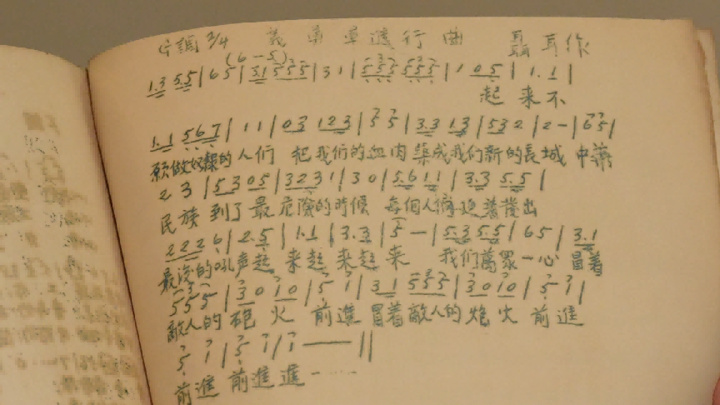 G調 2/4 義勇軍進行曲 聶耳作
(6-5)
1.3 5 5 | 6 5 | 3.1 5 5 5 | 3 1 | 5 5 5 5 5 5 | 1 0 5 | 1. 1 |
起 來 不
1.1 5 6 7 | 1 1 | 0 3 1 2 3 | 5 5 | 3.3 1 3 | 5 3 2 | 2 - | 6 5 |
願做奴隸的人們 把我們的血肉 築成我們新的長城 中華
2 3 | 5 3 0 5 | 3 2 3 1 | 3 0 | 5.6 1 1 | 3.3 5 5 |
民族 到了 最 危險的時候 每個人 被 迫着發出
2 2 2 6 | 2.5 | 1.1 | 3.3 | 5 — | 5.3 5 5 | 6 5 | 3.1
最後的吼声起 來起 來起 來 我們萬眾一心 冒着
5 5 5 | 3 0 1 0 | 5 1 | 3 1 5 5 5 | 3 0 1 0 | 5 1 |
敵人的 砲 火 前進 冒着敵人的 炮 火 前進
5 1 | 5 1 | 1 —— ||
前進 前進進 ······